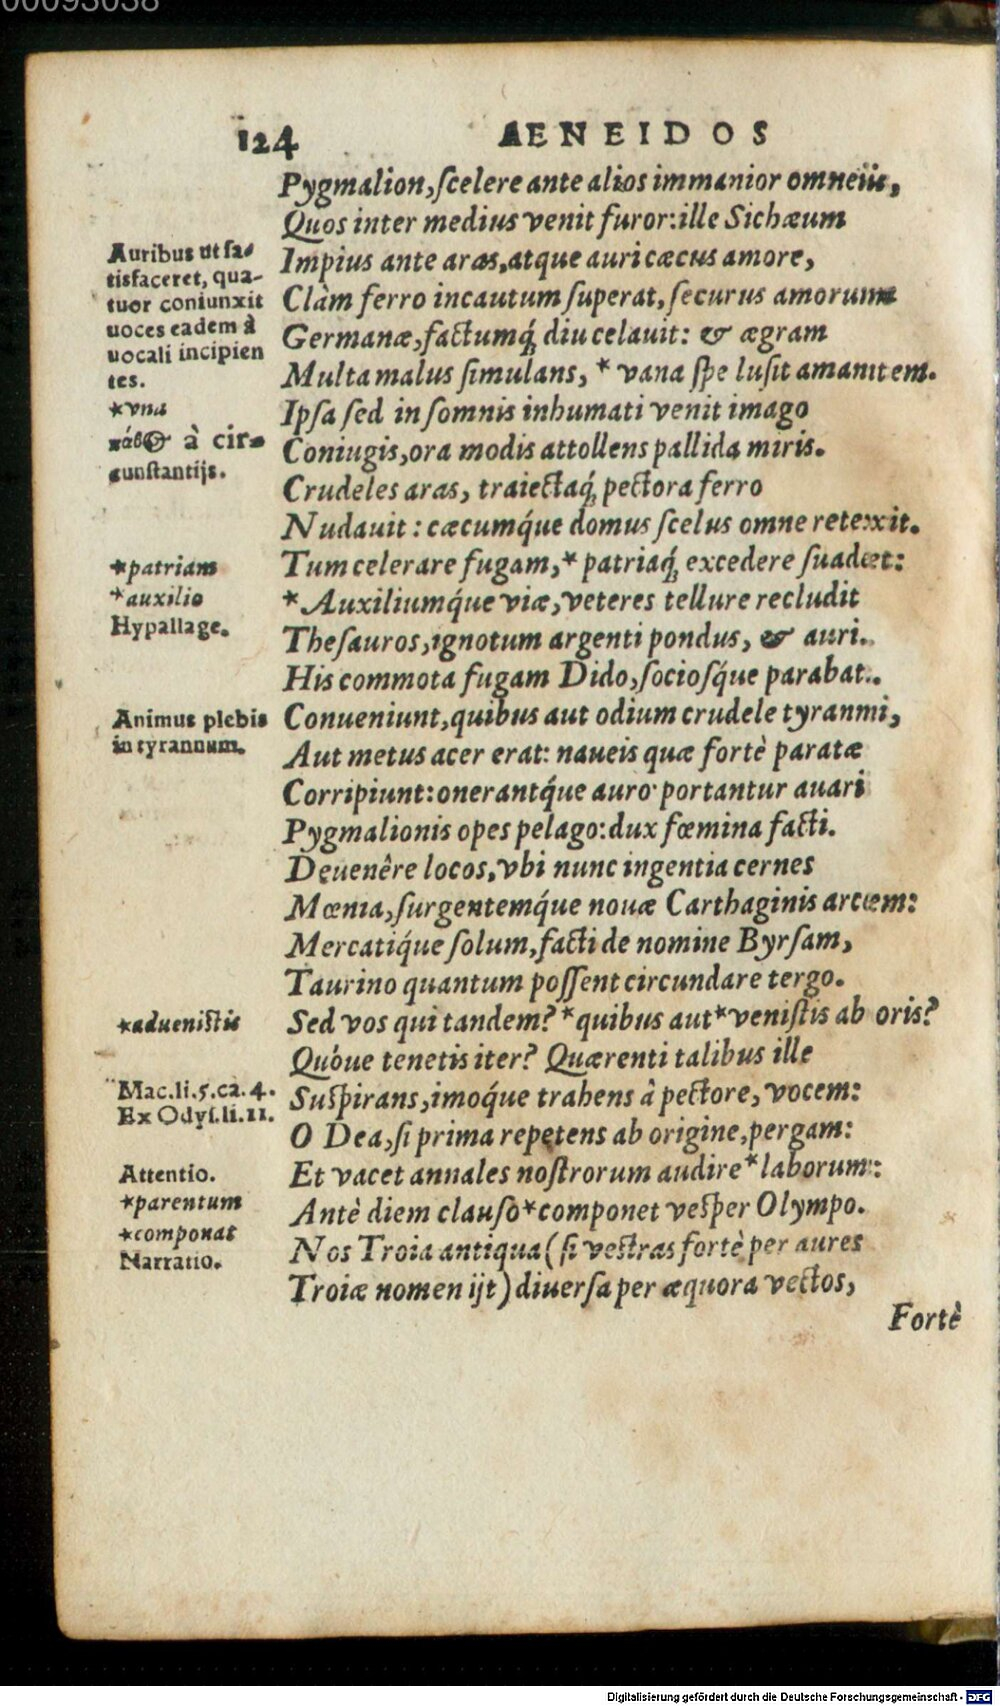 00093038
124
AENEIDOS
Pygmalion, ſcelere ante alios immanior omneis,
Quos inter medius venit furor: ille Sichæum
Impius ante aras, atque auri cæcus amore,
Clàm ferro incautum ſuperat, ſecurus amorum
Germanæ, factumq́; diu celauit: & ægram
Multa malus ſimulans, * vana ſpe luſit amantem.
Ipſa ſed in ſomnis inhumati venit imago
Coniugis, ora modis attollens pallida miris.
Crudeles aras, traiectaq́; pectora ferro
Nudauit: cæcumq́ue domus ſcelus omne retexit.
Tum celerare fugam, * patriaq́; excedere ſuadet:
* Auxiliumq́ue viæ, veteres tellure recludit
Theſauros, ignotum argenti pondus, & auri.
His commota fugam Dido, ſocioſq́ue parabat.
Conueniunt, quibus aut odium crudele tyranni,
Aut metus acer erat: naueis quæ fortè paratæ
Corripiunt: onerantq́ue auro portantur auari
Pygmalionis opes pelago: dux fœmina facti.
Deuenêre locos, vbi nunc ingentia cernes
Mœnia, ſurgentemq́ue nouæ Carthaginis arcem:
Mercatiq́ue ſolum, facti de nomine Byrſam,
Taurino quantum poſſent circundare tergo.
Sed vos qui tandem? * quibus aut * veniſtis ab oris?
Quóue tenetis iter? Quærenti talibus ille
Suſpirans, imoq́ue trahens à pectore, vocem:
O Dea, ſi prima repetens ab origine, pergam:
Et vacet annales noſtrorum audire * laborum:
Antè diem clauſo * componet veſper Olympo.
Nos Troia antiqua (ſi veſtras fortè per aures
Troiæ nomen ijt) diuerſa per æquora vectos,
Fortè
Auribus ut ſa-
tisfaceret, qua-
tuor coniunxit
uoces eadem à
uocali incipien
tes.
*vna
πάθ&omicron;ς à cir-
cunſtantijs.
*patriam
*auxilio
Hypallage.
Animus plebis
in tyrannum.
*adueniſtis
Mac.li.5.ca.4.
Ex Odyſ.li.11.
Attentio.
*parentum
*componat
Narratio.
Digitalisierung gefördert durch die Deutsche Forschungsgemeinschaft - DFG